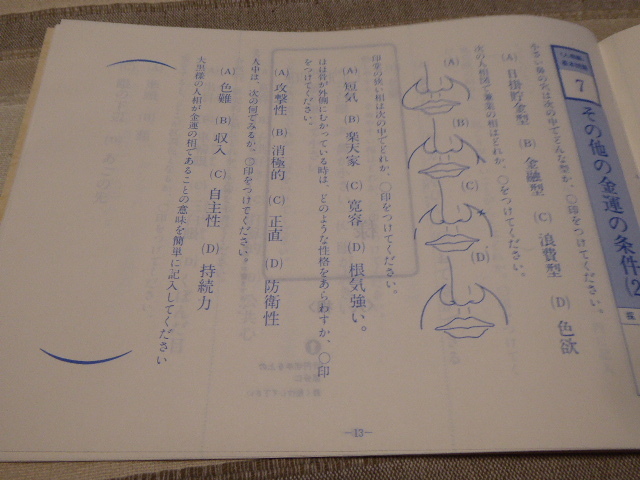 7
その他の金運の条件(2
小さい鼻の穴は次の中でどんな型か、〇印をつけてください。
(A) 日掛貯金型 (B) 金融型 (C) 浪費型 (D) 色欲
次の人相図で兼業の相はどれか、〇をつけてください。
(A) (B) (C) (D)
印堂の狭い相は次の中でどれか、〇印をつけてください。
(A) 短気 (B) 楽天家 (C) 寛容 (D) 根気強い。
ほほ骨が外側にむかっている時は、どのような性格をあらわすか、〇印
をつけてください。
(A) 攻撃性 (B) 消極的 (C) 正直 (D) 防衛性
人中は、次の何でみるか、〇印をつけてください。
(A) 色難 (B) 収入 (C) 自主性 (D) 持続力
大黒様の人相が金運の相であることの意味を簡単に記入してください